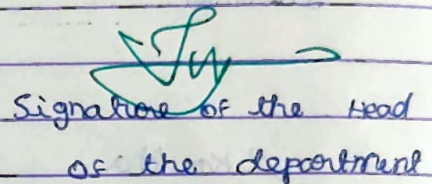 Signature of the Head
of the department